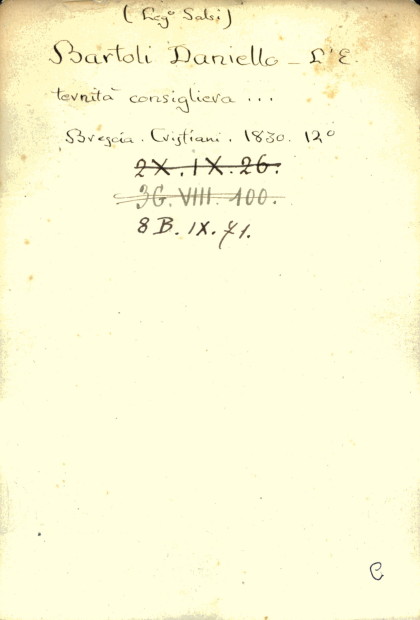 (Leg° Salsi)
Bartoli Daniello - L'E
ternità consigliera ...
Brescia. Cristiani. 1830. 12°
2X.IX.26.
3G.VIII.100.
8B.IX.71.
C